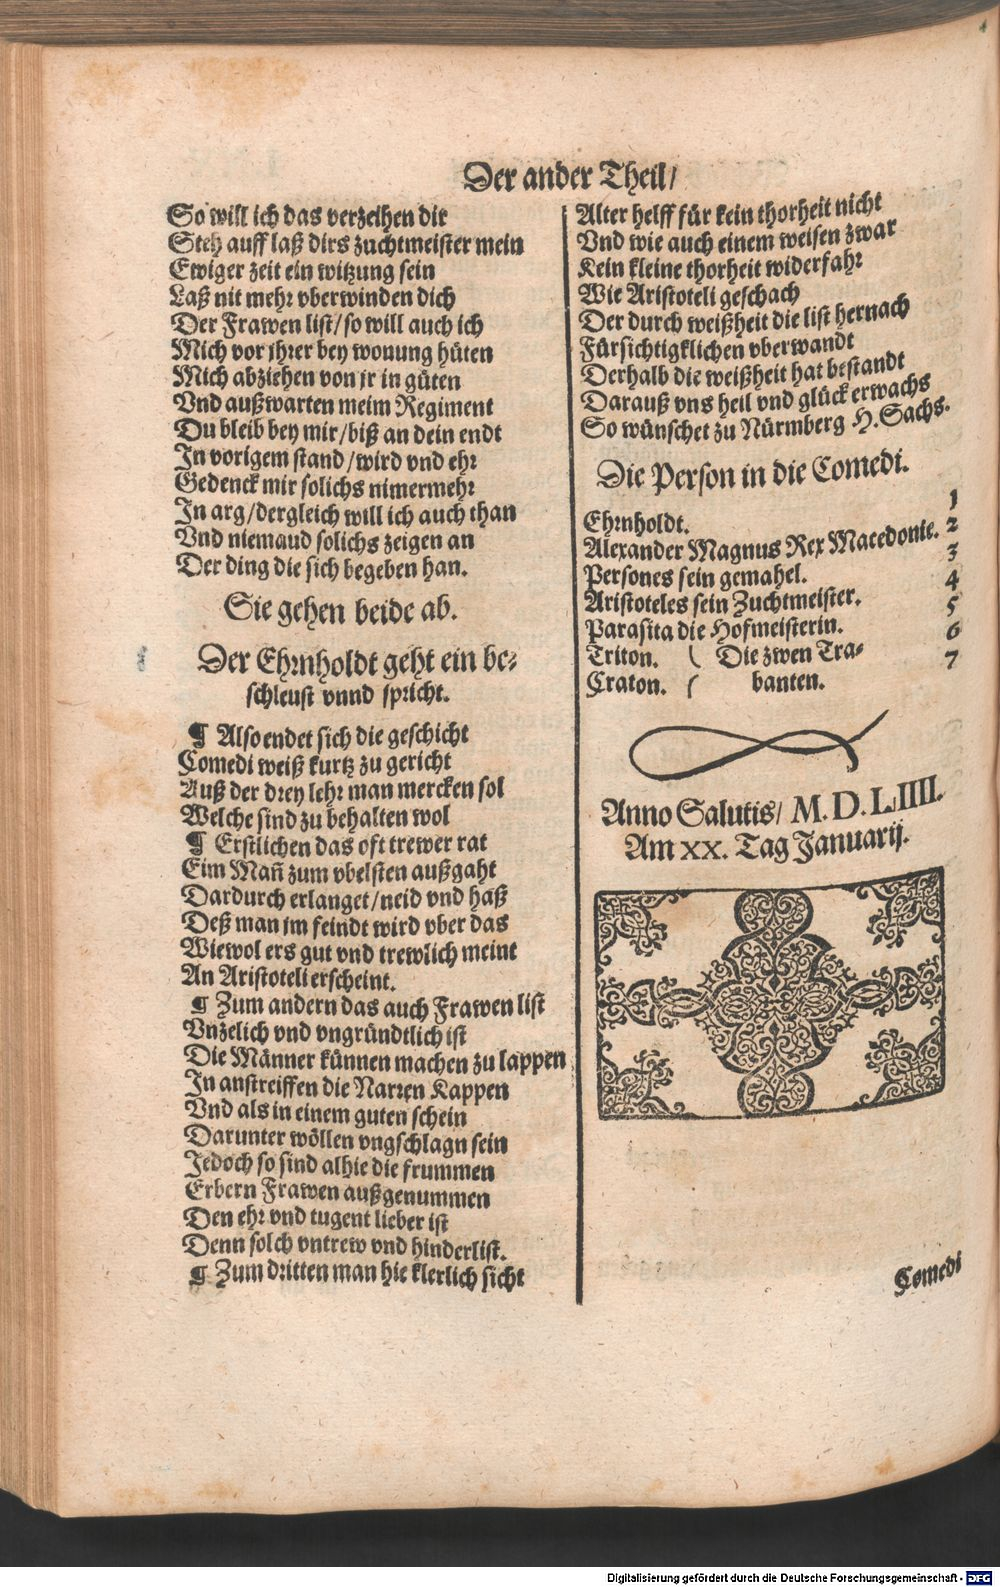 Der ander Theil/
So will ich das verzeihen dir
Steh auff laß dirs zuchtmeister mein
Ewiger zeit ein witzung sein
Laß nit mehr vberwinden dich
Der Frawen list/so will auch ich
Mich vor jhrer bey wonung hüten
Mich abziehen von jr in güten
Vnd außwarten meim Regiment
Du bleib bey mir/biß an dein endt
In vorigem stand/wird vnd ehr
Gedenck mir solichs nimermehr
In arg/dergleich will ich auch than
Vnd niemand solichs zeigen an
Der ding die sich begeben han.
Sie gehen beide ab.
Der Ehrnholdt geht ein be-
schleust vnnd spricht.
¶ Also endet sich die geschicht
Comedi weiß kurtz zu gericht
Auß der drey lehr man mercken sol
Welche sind zu behalten wol
¶ Erstlichen das oft trewer rat
Eim Mañ zum vbelsten außgaht
Dardurch erlanget/neid vnd haß
Deß man jm feindt wird vber das
Wiewol ers gut vnd trewlich meint
An Aristoteli erscheint.
¶ Zum andern das auch Frawen list
Vnzelich vnd vngründtlich ist
Die Männer künnen machen zu lappen
In anstreiffen die Narren Kappen
Vnd als in einem guten schein
Darunter wöllen vngschlagn sein
Jedoch so sind alhie die frummen
Erbern Frawen außgenummen
Den ehr vnd tugent lieber ist
Denn solch vntrew vnd hinderlist.
¶ Zum dritten man hie klerlich sicht
Alter helff für kein thorheit nicht
Vnd wie auch einem weisen zwar
Kein kleine thorheit widerfahr
Wie Aristoteli geschach
Der durch weißheit die list hernach
Fürsichtigklichen vberwandt
Derhalb die weißheit hat bestandt
Darauß vns heil vnd glück erwachs
So wünschet zu Nürmberg H. Sachs.
Die Person in die Comedi.
Ehrnholdt. 1
Alexander Magnus Rex Macedonie. 2
Persones sein gemahel. 3
Aristoteles sein Zuchtmeister. 4
Parasita die Hofmeisterin. 5
Triton. ( Die zwen Tra- 6
Craton. ( banten. 7
Anno Salutis/ M. D. LIIII.
Am XX. Tag Januarij.
Comedi
Digitalisierung gefördert durch die Deutsche Forschungsgemeinschaft - DFG